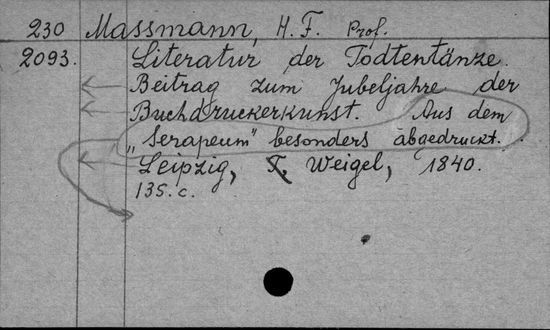 230 Massmann, H. F. Prof.
2093. Literatur der Todtentänze.
Beitrag zum Jubeljahre der
Buchdruckerkunst. Aus dem
„Serapeum" besonders abgedruckt.
Leipzig, T. Weigel, 1840.
135. c.